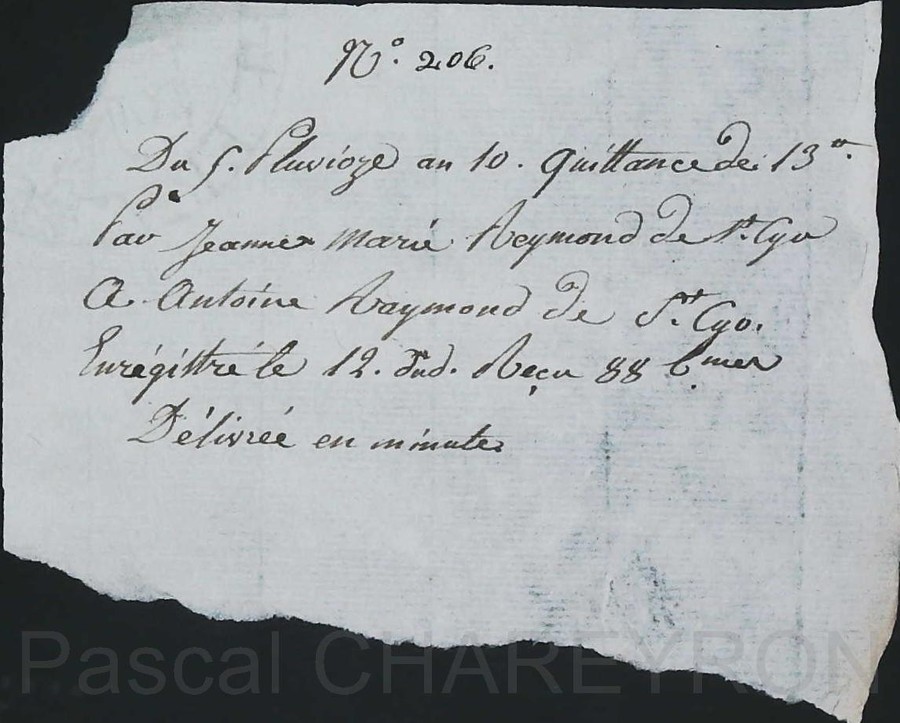 N.º 206.
Du 5. Pluvioze an 10. Quittance de 13#.
Par Jeanne marie Reymond de St. Cyr
A Antoine Raymond de St. Cyr.
Enrégistré le 12. dud. Reçu 88 C.mes
Délivrée en minute
Pascal CHAREYRON